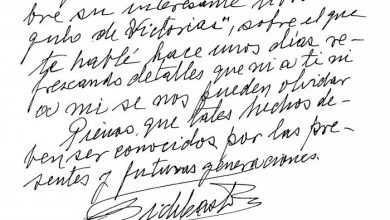 bre su interesante
quilo de Victorias", sobre el que
te hablé hace unos días re-
frescando detalles que ni a ti ni
a mi se nos pueden olvidar
Pienso, que tales hechos de-
ben ser conocidos por las pre-
sentes y futuras generaciones.